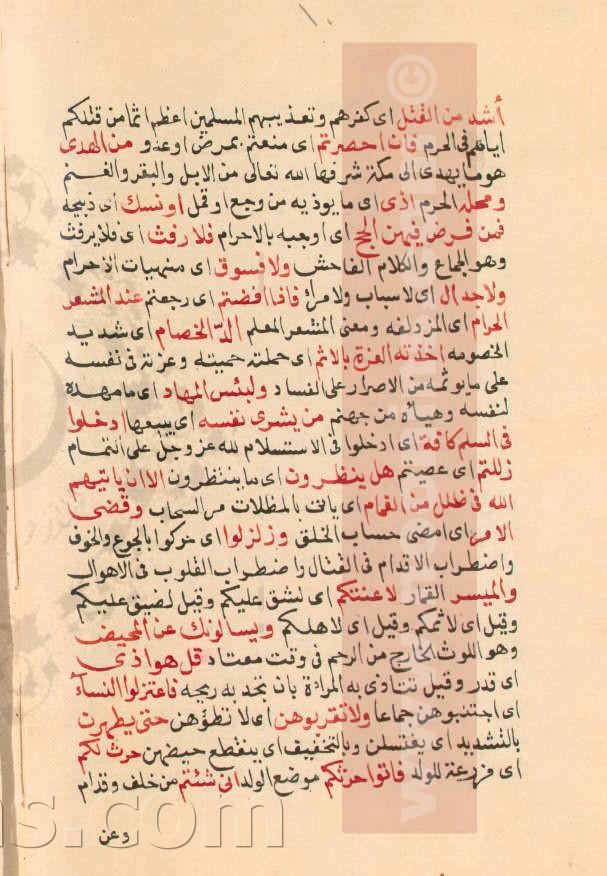 أشد من القتل اى كفرهم وتعذيبهم المسلمين اعظم اثما من قتلكم
اياهم فى الحرم فان احصرتم اى منعتم بمرض او عدو من الهدى
هو ما يهدى الى مكة شرفها الله تعالى من الابل والبقر والغنم
ومحله الحرم اذى اى ما يوذيه من وجع او قمل او نسك اى ذبيحه
فمن فرض فيهن الحج اى اوجبه بالاحرام فلا رفث اى فلا يرفث
وهو الجماع والكلام الفاحش ولا فسوق اى منهيات الاحرام
ولا جدال اى لا سباب ولا مرأ فاذا افضتم اى رجعتم عند المشعر
الحرام اى المزدلفه ومعنى المشعر المعلم الدّ الخصام اى شديد
الخصومه اخذته العزة بالاثم اى حملته حميته وعزته فى نفسه
على ما يوثمه من الاصرار على الفساد ولبئس المهاد اى ما مهده
لنفسه وهيأه من جهنم من يشرى نفسه اى يبيعها ادخلوا
فى السلم كافة اى ادخلوا فى الاستسلام لله عز وجل على التمام
زللتم اى عصيتم هل ينظرون اى ما ينتظرون الا ان ياتيهم
الله فى ظلل من الغمام اى ياتى بالمظلات من السحاب وقضى
الامر اى امضى حساب الخلق وزلزلوا اى حركوا بالجوع والخوف
واضطراب الاقدام فى القتال واضطراب القلوب فى الاهوال
والميسر القمار لاعنتكم اى لشق عليكم وقيل لضيق عليكم
وقيل اى لاثمكم وقيل اى لاهلكم ويسالونك عن المحيض
وهو اللوث الخارج من الرحم فى وقت معتاد قل هو اذى
اى قدر وقيل تتاذى به المراة بان تجد به ريحه فاعتزلوا النسآء
اى اجتنبوهن جماعا ولا تقربوهن اى لا تطؤهن حتى يطهرن
بالتشديد اى يغتسلن وبالتخفيف اى ينقطع حيضهن حرث لكم
اى مزرعة للولد فاتوا حرثكم موضع الولد انى شئتم من خلف وقدام
وعن